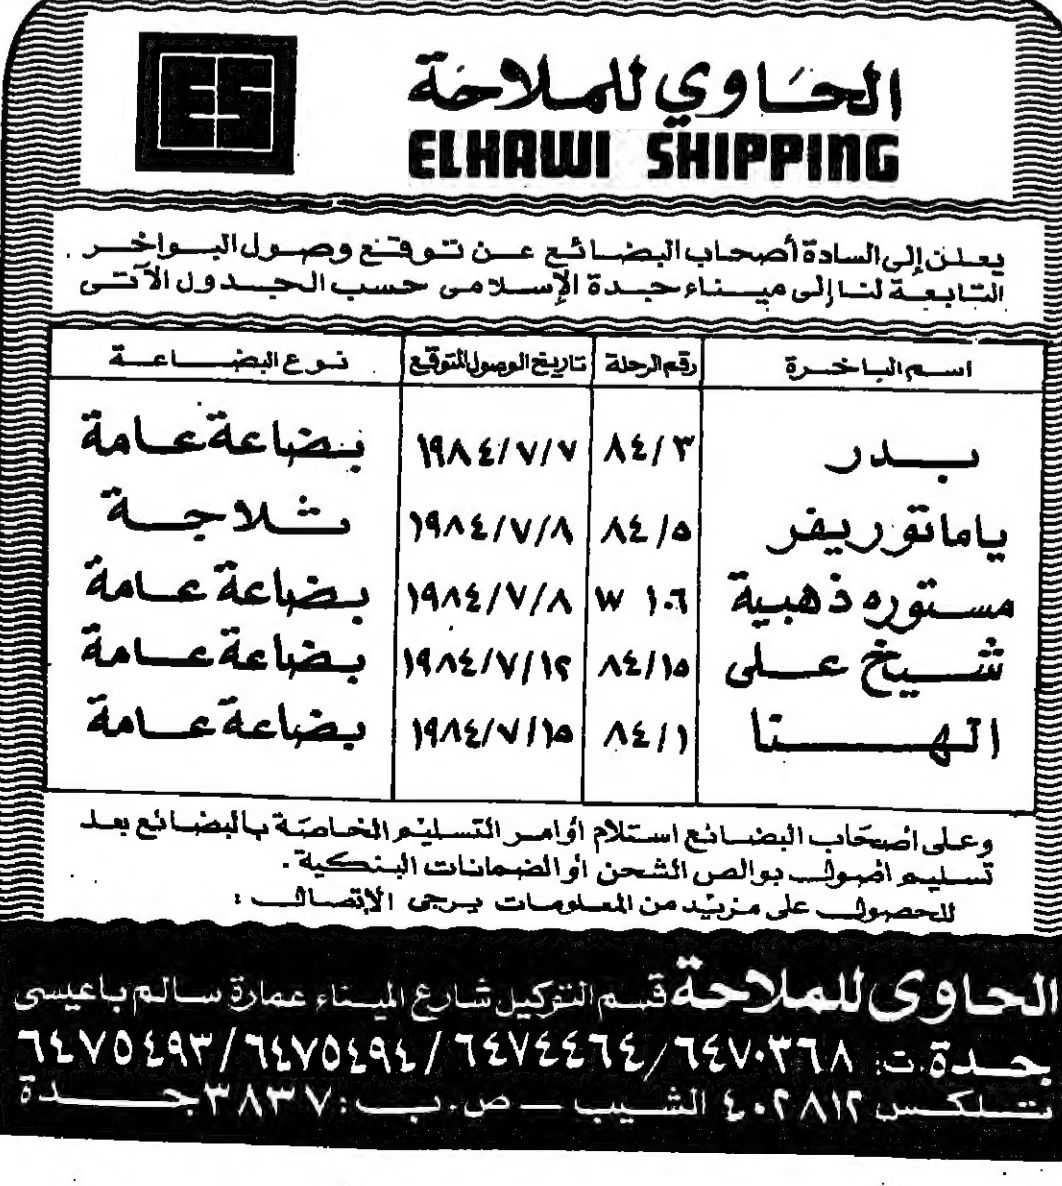 ES
الحاوي للملاحة
ELHAWI SHIPPING
يعلن إلى السادة أصحاب البضائع عن توقع وصول البواخر
التابعة لنا إلى ميناء جدة الإسلامى حسب الجدول الآتى
اسم الباخرة رقم الرحلة تاريخ الوصول المتوقع نوع البضاعة
بدر ٨٤/٣ ١٩٨٤/٧/٧ بضاعة عامة
ياماتو ريفر ٨٤/٥ ١٩٨٤/٧/٨ ثلاجة
مستوره ذهبية W ١٠٦ ١٩٨٤/٧/٨ بضاعة عامة
شيخ على ٨٤/١٥ ١٩٨٤/٧/١٢ بضاعة عامة
الهنا ٨٤/١ ١٩٨٤/٧/١٥ بضاعة عامة
وعلى أصحاب البضائع استلام أوامر التسليم الخاصة بالبضائع بعد
تسليم أصول بوالص الشحن أو الضمانات البنكية .
للحصول على مزيد من المعلومات يرجى الإتصال :
الحاوى للملاحة قسم التوكيل شارع الميناء عمارة سالم باعيسى
جدة . ت : ٦٤٧٠٣٦٨ / ٦٤٧٤٤٦٤ / ٦٤٧٥٤٩٤ / ٦٤٧٥٤٩٣
تلكس ٤٠٢٨١٢ الشيب - ص . ب : ٣٨٣٧ جدة